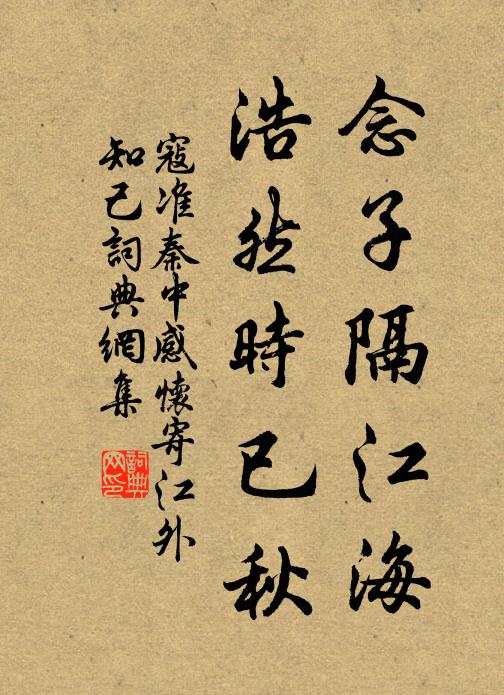 念子隔江海
浩然時已秋
寇准秦中感懷寄江外
知己詞典網集
詞典網印